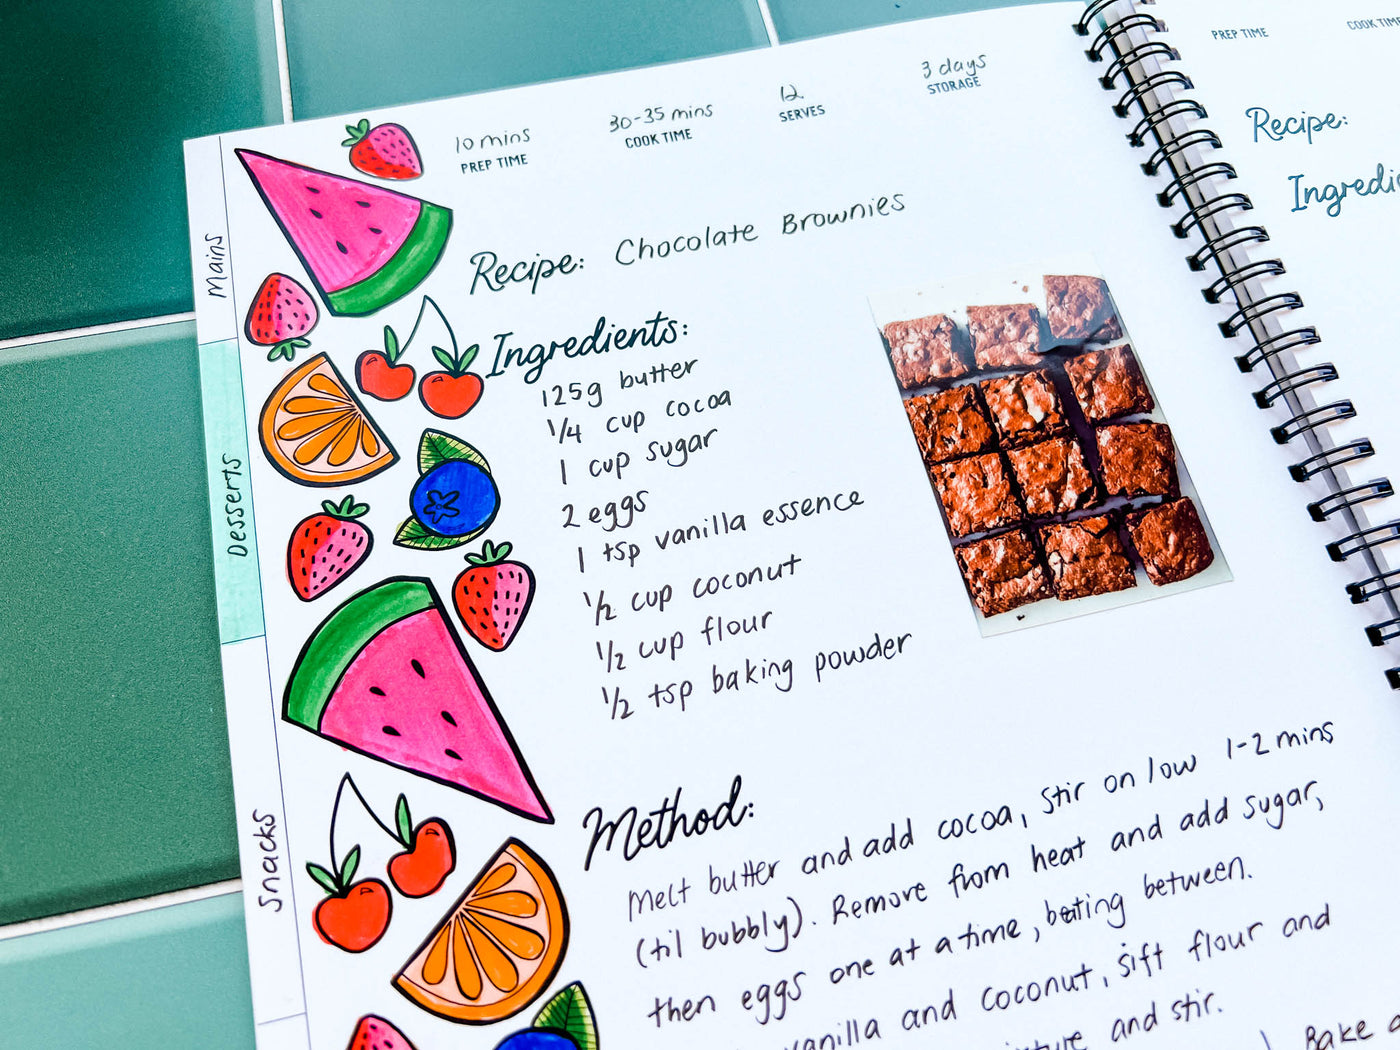 10 mins
PREP TIME
30-35 mins
COOK TIME
12
SERVES
3 days
STORAGE
Recipe: Chocolate Brownies
Ingredients:
125g butter
1/4 cup cocoa
1 cup sugar
2 eggs
1 tsp vanilla essence
1/2 cup coconut
1/2 cup flour
1/2 tsp baking powder
Method:
Melt butter and add cocoa, stir on low 1-2 mins
(til bubbly). Remove from heat and add sugar,
then eggs one at a time, beating between.
vanilla and coconut, sift flour and
and stir.
Bake
Mains
Desserts
Snacks
PREP TIME
COOK TIME
Recipe: